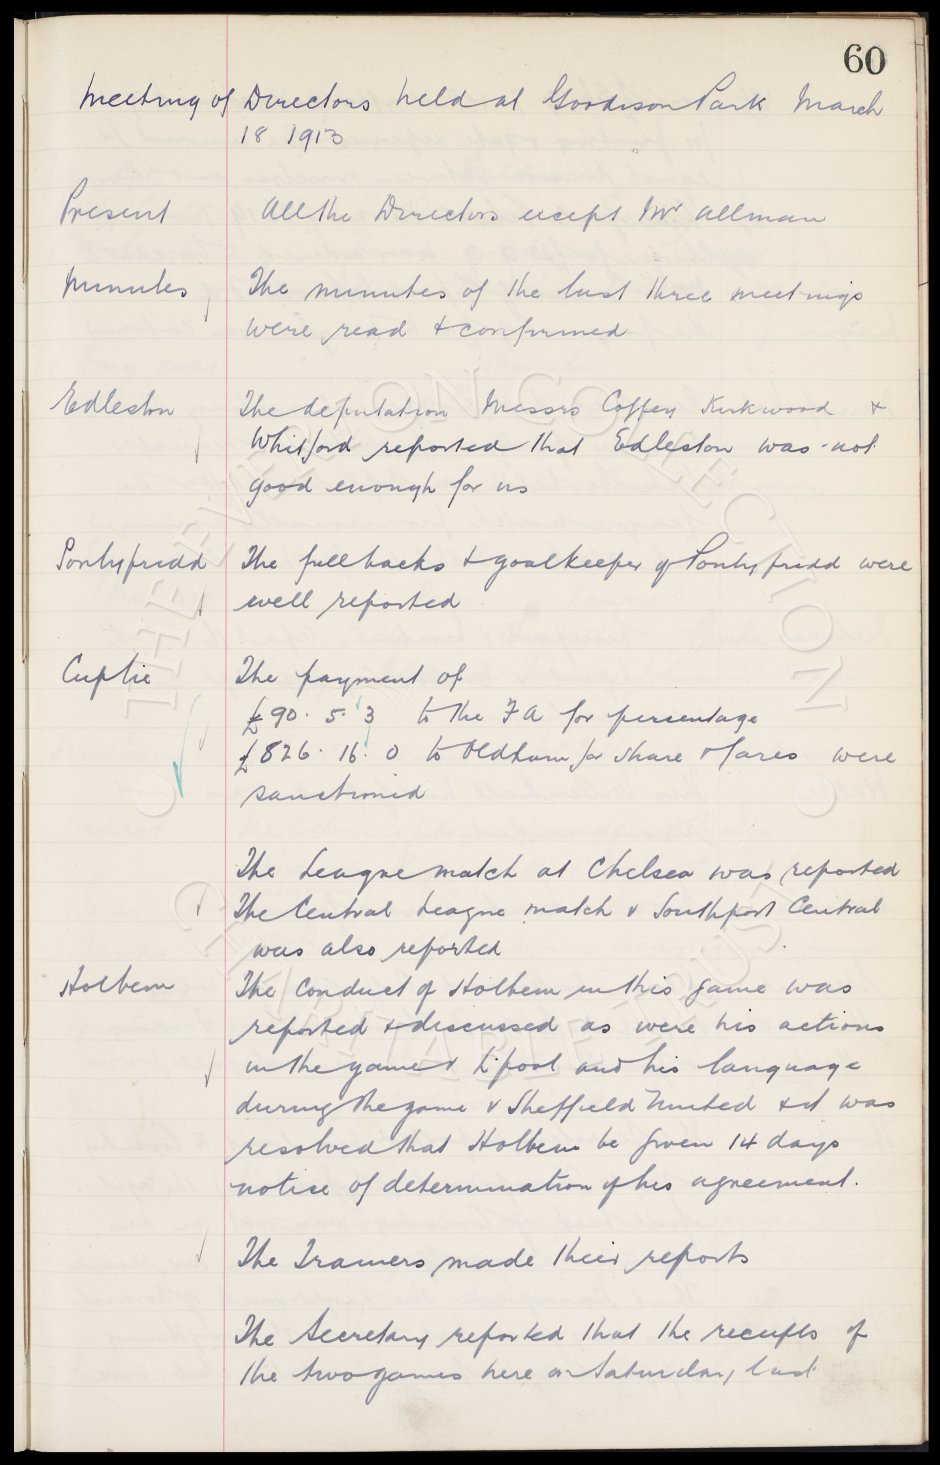 60
Meeting of Directors held at Goodison Park March
18 1913
Present All the Directors except Mr Allman
Minutes The minutes of the last three meetings
were read & confirmed
Edleston The deputation Messrs Coffey Kirkwood &
Whitford reported that Edleston was not
good enough for us
Pontypridd The fullbacks & goalkeeper of Pontypridd were
well reported
Cuptie The payment of
£90. 5. 3 to the F A for percentage
£826. 16. 0 to Oldham for share & fares were
sanctioned
The League match at Chelsea was reported
The Central League match v Southport Central
was also reported
Holbem The Conduct of Holbem in this game was
reported & discussed as were his actions
in the game v L'pool and his language
during the game v Sheffield United & it was
resolved that Holbem be given 14 days
notice of determination of his agreement.
The Trainers made their reports
The Secretary reported that the receipts of
the two games here on Saturday last
THE EVERTON COLLECTION
CHARITABLE TRUST